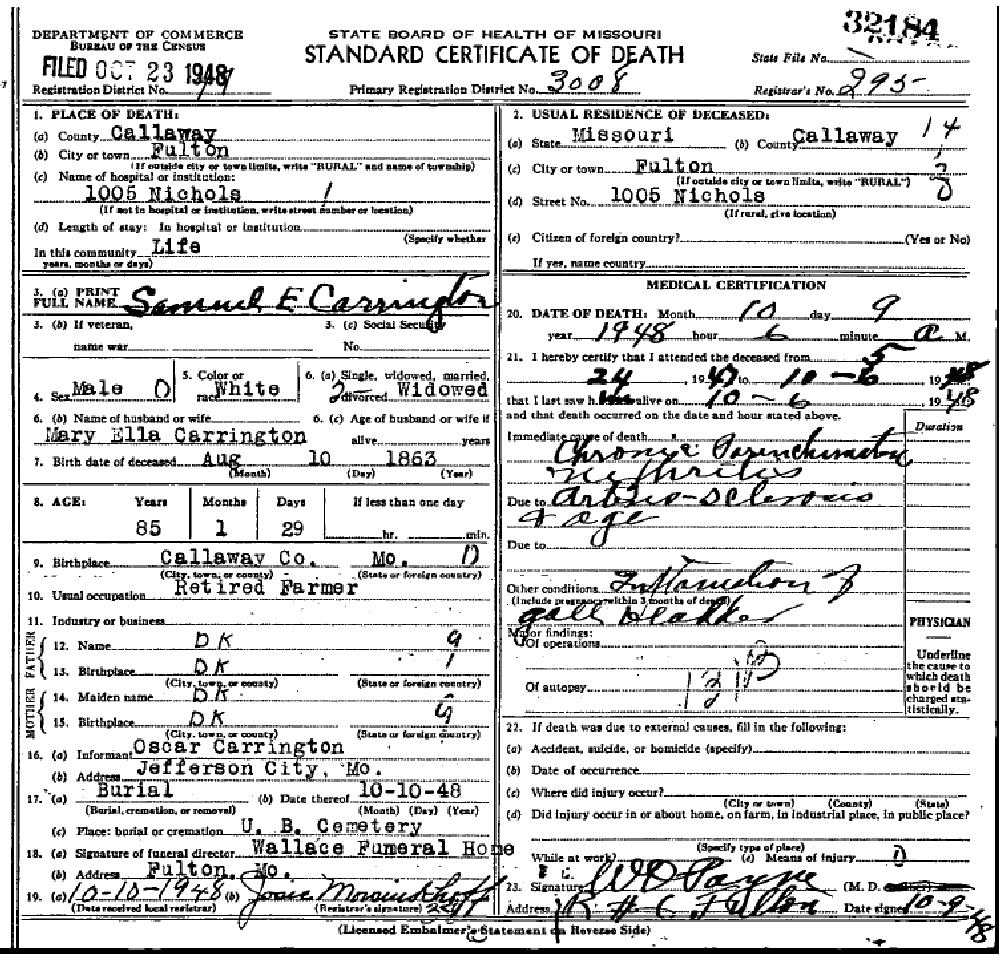 32184
DEPARTMENT OF COMMERCE
BUREAU OF THE CENSUS
STATE BOARD OF HEALTH OF MISSOURI
STANDARD CERTIFICATE OF DEATH
State File No.
FILED OCT 23 1948
Registration District No.
Primary Registration District No. 3008
Registrar's No. 295
1. PLACE OF DEATH:
(a) County Callaway
(b) City or town Fulton
(If outside city or town limits, write "RURAL" and name of township)
(c) Name of hospital or institution:
1005 Nichols 1
(If not in hospital or institution, write street number or location)
(d) Length of stay: In hospital or institution
(Specify whether
In this community Life
years, months or days)
3. (a) PRINT FULL NAME Samuel E Carrington
3. (b) If veteran, name war
3. (c) Social Security No.
4. Sex Male 0
5. Color or race White
6. (a) Single, widowed, married, divorced 2 Widowed
6. (b) Name of husband or wife
Mary Ella Carrington
6. (c) Age of husband or wife if alive years
7. Birth date of deceased Aug 10 1863
(Month) (Day) (Year)
8. AGE: Years Months Days If less than one day
85 1 29 hr. min.
9. Birthplace Callaway Co. Mo. 0
(City, town, or county) (State or foreign country)
10. Usual occupation Retired Farmer
11. Industry or business
FATHER
12. Name DK 9
13. Birthplace DK 1
(City, town, or county) (State or foreign country)
MOTHER
14. Maiden name DK
15. Birthplace DK 9
(City, town, or county) (State or foreign country)
16. (a) Informant Oscar Carrington
(b) Address Jefferson City, Mo.
17. (a) Burial (b) Date thereof 10-10-48
(Burial, cremation, or removal) (Month) (Day) (Year)
(c) Place: burial or cremation U. B. Cemetery
18. (a) Signature of funeral director Wallace Funeral Home
(b) Address Fulton, Mo.
19. (a) 10-10-1948 (b)
(Date received local registrar) (Registrar's signature)
2. USUAL RESIDENCE OF DECEASED:
(a) State Missouri (b) County Callaway 14
(c) City or town Fulton
(If outside city or town limits, write "RURAL")
(d) Street No. 1005 Nichols
(If rural, give location)
(e) Citizen of foreign country? (Yes or No)
If yes, name country
MEDICAL CERTIFICATION
20. DATE OF DEATH: Month 10 day 9
year 1948 hour 6 minute a M.
21. I hereby certify that I attended the deceased from 5
24, 1947 to 10-6 1948
that I last saw h alive on 10-6, 1948
and that death occurred on the date and hour stated above.
Duration
Immediate cause of death Chronic
Due to
& age
Due to
Other conditions
(Include pregnancy within 3 months of death)
gall bladder
Major findings:
Of operations
Of autopsy 131B
PHYSICIAN
Underline the cause to which death should be charged statistically.
22. If death was due to external causes, fill in the following:
(a) Accident, suicide, or homicide (specify)
(b) Date of occurrence
(c) Where did injury occur?
(City or town) (County) (State)
(d) Did injury occur in or about home, on farm, in industrial place, in public place?
(Specify type of place)
While at work? (e) Means of injury 0
23. Signature W D Payne (M. D.
Address Fulton Date signed 10-9-48
(Licensed Embalmer's Statement on Reverse Side)